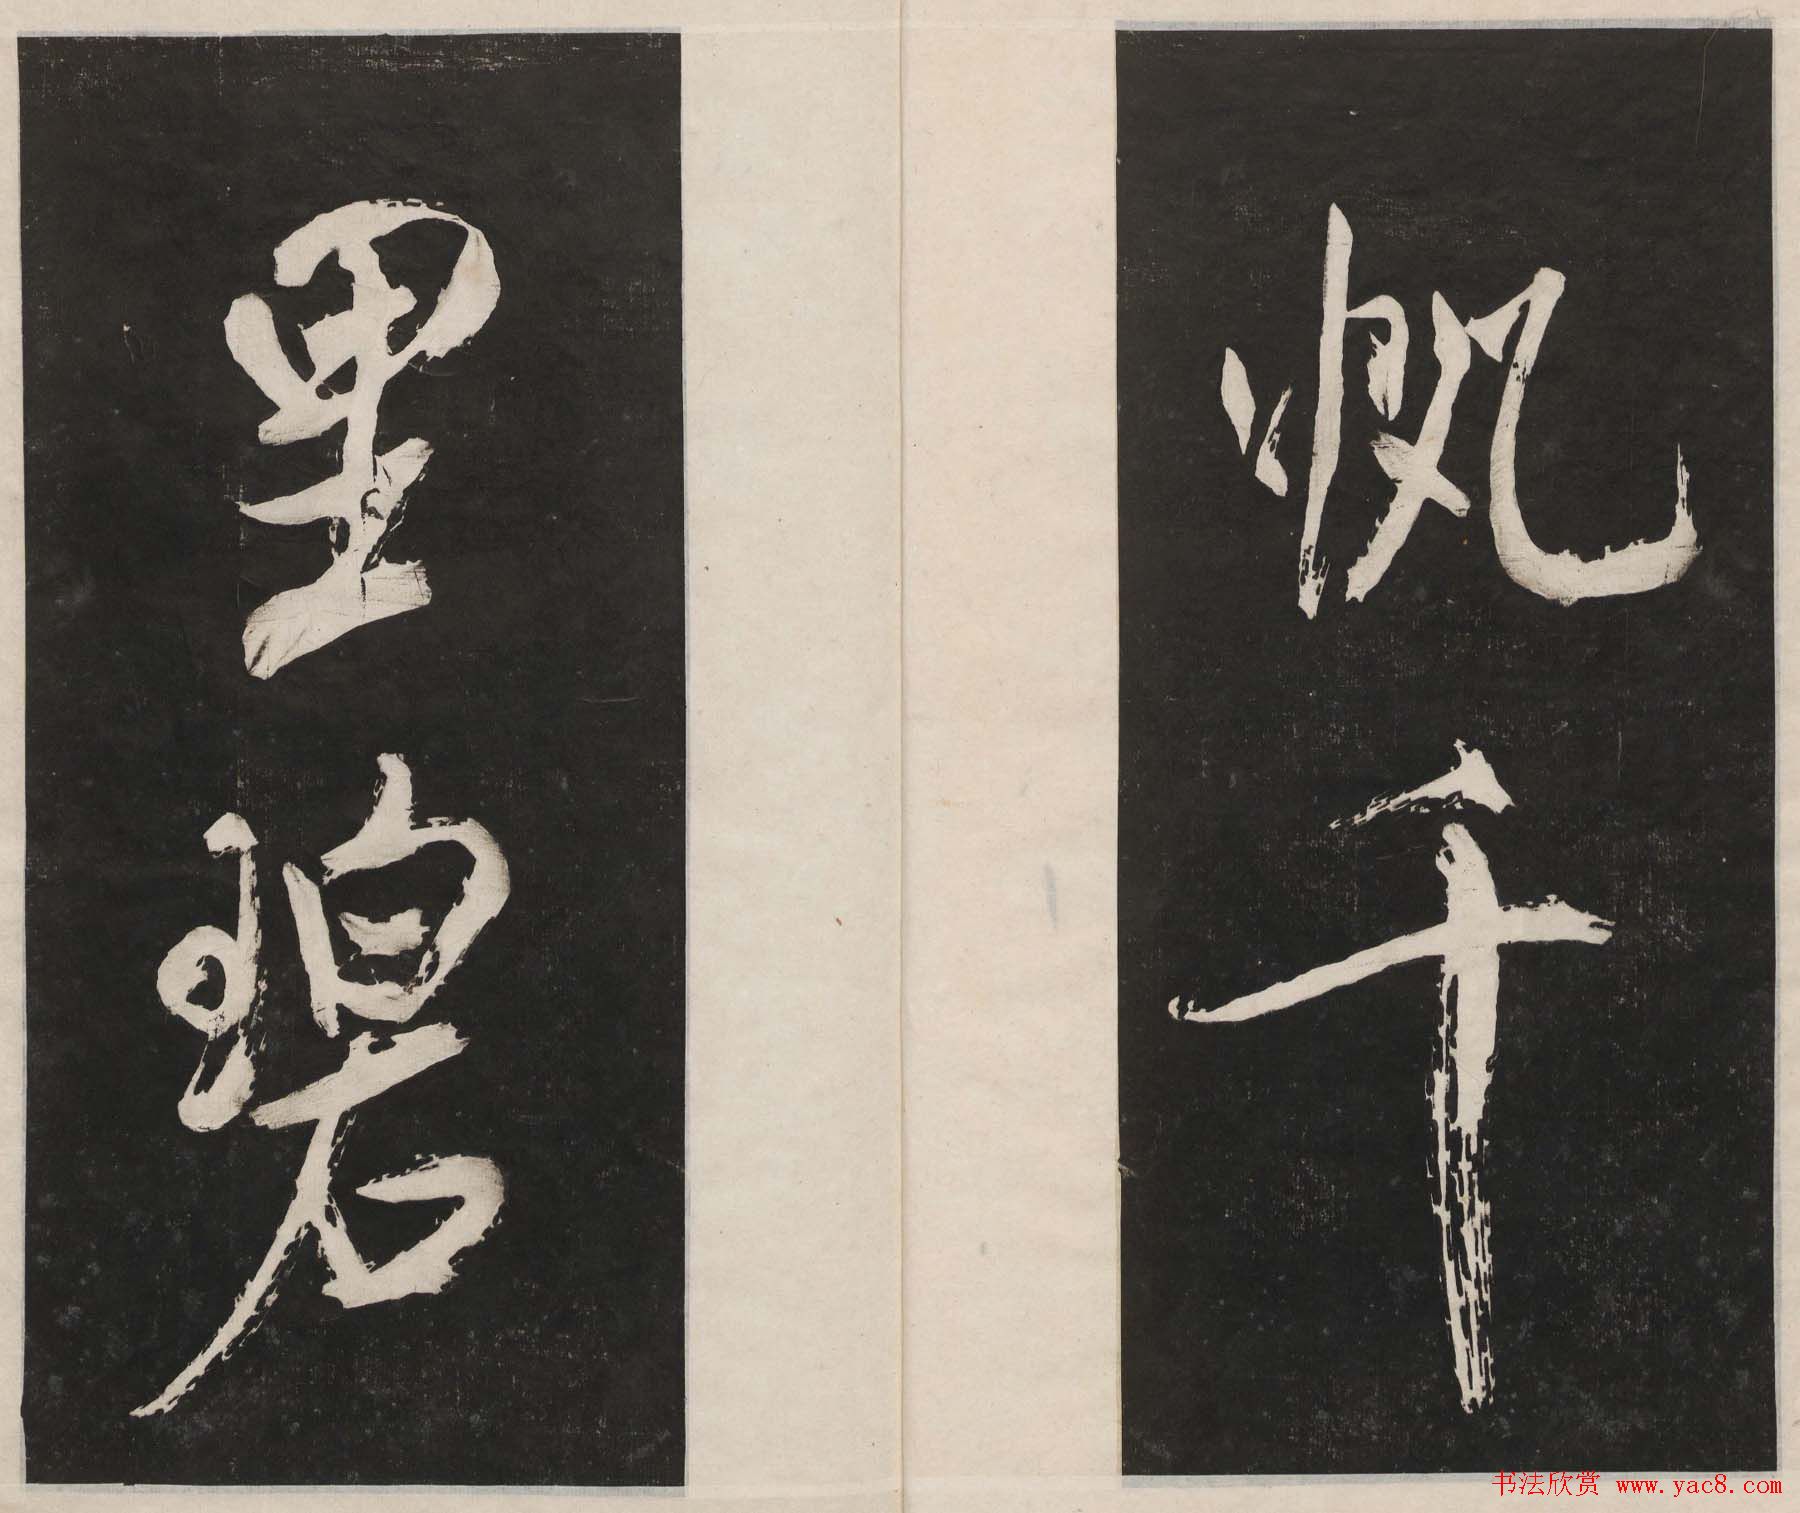 帆千
里碧
书法欣赏 www.yac8.com